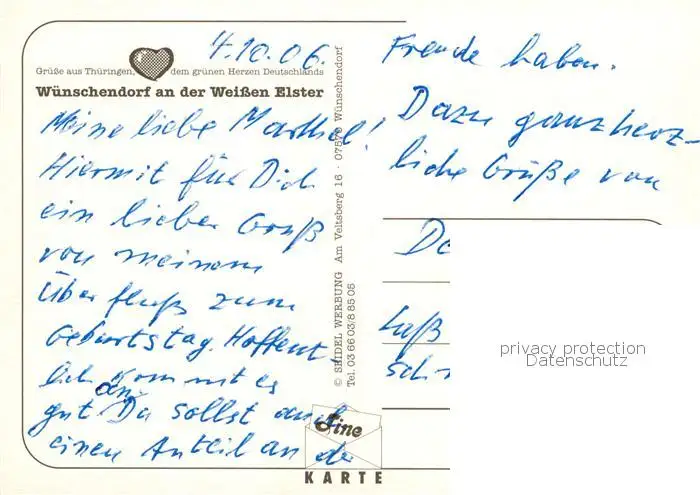 4.10.06.
Grüße aus Thüringen, dem grünen Herzen Deutschlands
Wünschendorf an der Weißen Elster
Meine liebe !
Hiermit für Dich
ein lieber Gruß
von meinem
Überfluß zum
Geburtstag. Hoffent-
lich kommt es
gut an. Du sollst auch
einen Anteil an der
© SEIDEL WERBUNG Am Veitsberg 16 · 07570 Wünschendorf
Tel. 03 66 03/8 85 05
Freude haben.
Dazu ganz herz-
liche Grüße von
privacy protection
Datenschutz
Eine
KARTE